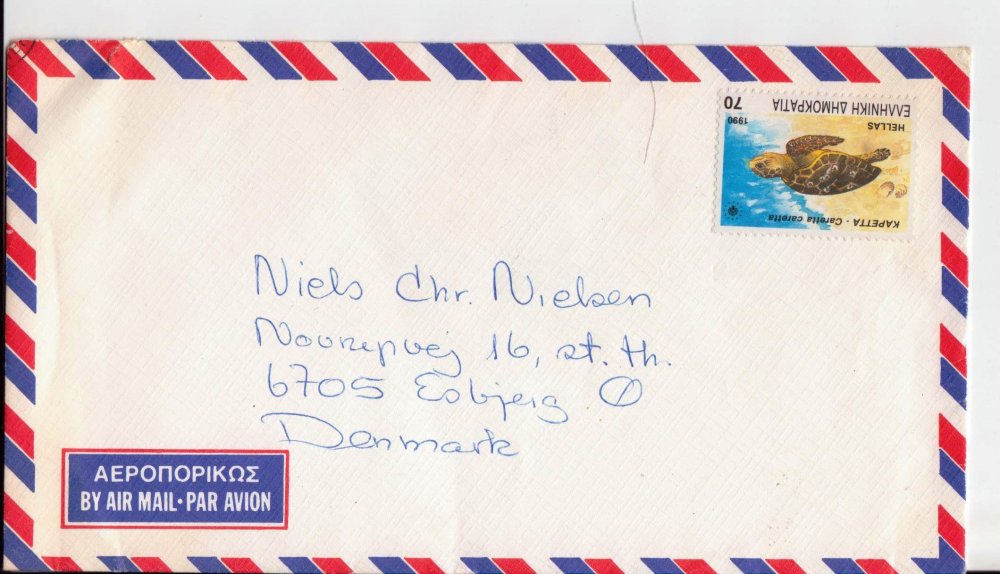 70
ΕΛΛΗΝΙΚΗ ΔΗΜΟΚΡΑΤΙΑ
1990
HELLAS
ΚΑΡΕΤΤΑ - Caretta caretta
Niels Chr. Nielsen
16, st. th.
6705 Esbjerg Ø
Denmark
ΑΕΡΟΠΟΡΙΚΩΣ
BY AIR MAIL • PAR AVION